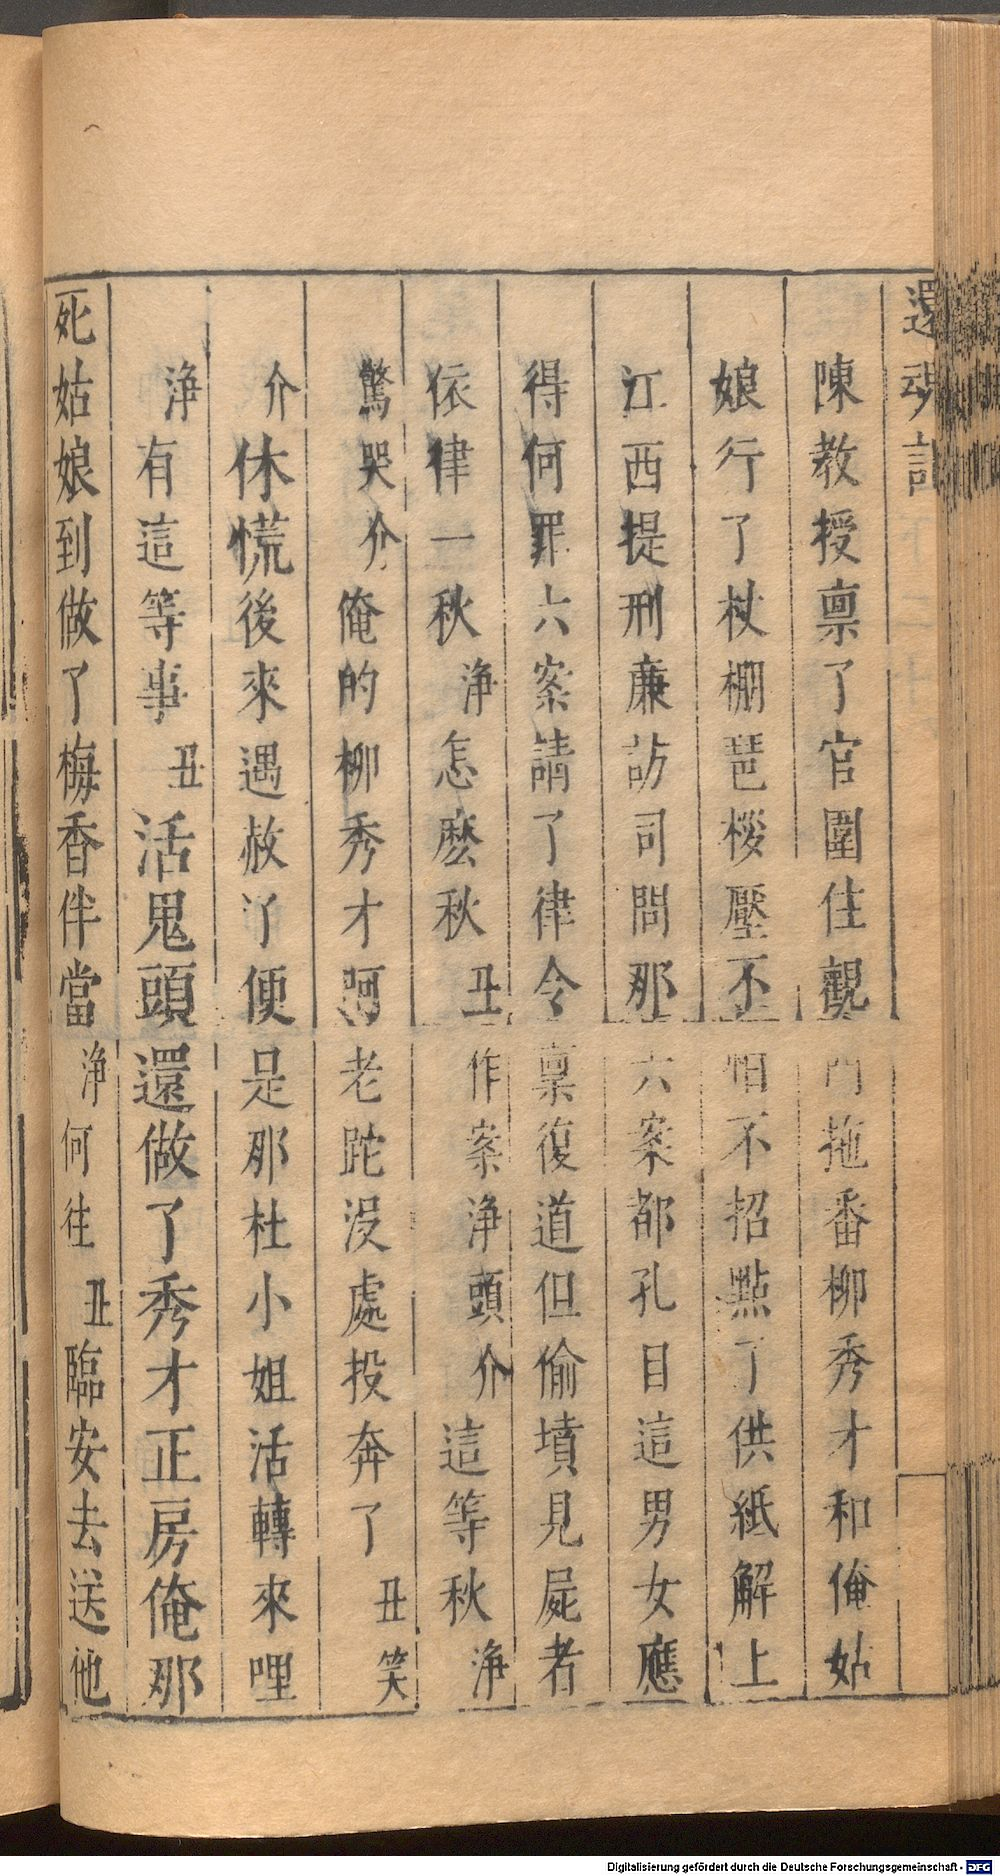 還魂記
陳教授禀了官圍住觀門拖番柳秀才和俺姑
娘行了杖棚琶桵壓不怕不招點了供紙解上
江西提刑廉訪司問那六案都孔目這男女應
得何罪六案請了律令禀復道但偷墳見屍者
依律一秋淨怎麽秋丑作案淨頭介這等秋淨
驚哭介俺的柳秀才呵老跎没處投奔了丑笑
介休慌後來遇赦了便是那杜小姐活轉來哩
淨有這等事丑活鬼頭還做了秀才正房俺那
死姑娘到做了梅香伴當淨何往丑臨安去送他
Digitalisierung gefördert durch die Deutsche Forschungsgemeinschaft - DFG